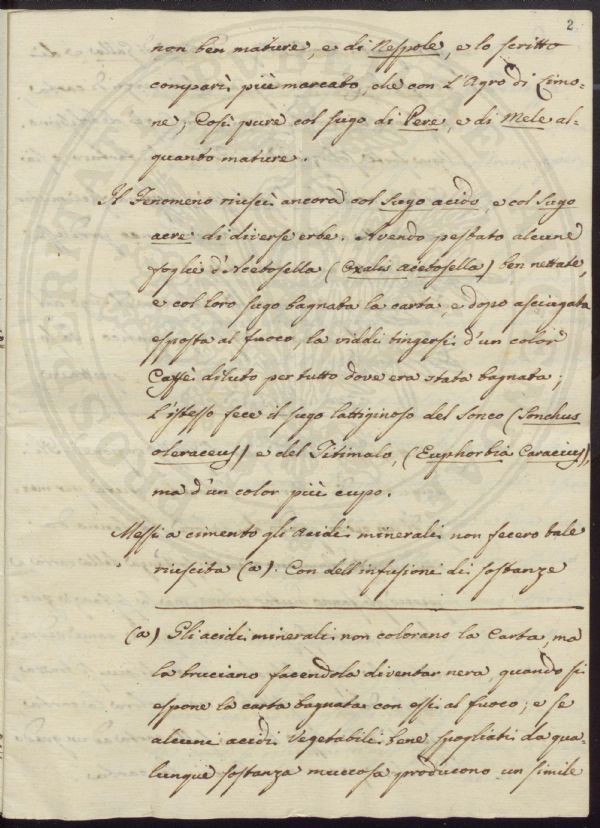 2
non ben mature, e di Nespole, e lo scritto
comparì più marcato, che con l'Agro di Limo-
ne; Così pure col sugo di Pere, e di Mele al-
quanto mature.
Il Fenomeno riuscì ancora col sugo acido, e col sugo
acre di diverse erbe. Avendo pestato alcune
foglie d'Acetosella (Oxalis acetosella) ben nettate,
e col loro sugo bagnata la carta, e dopo asciugata
esposta al fuoco, la viddi tingersi d'un color
Caffè diluto per tutto dove era stata bagnata;
L'istesso fece il sugo lattiginoso del Sonco (Sonchus
oleraceus) e del Titimalo, (Euphorbia Caracius),
ma d'un color più cupo.
Messi a cimento gli acidi minerali non fecero tale
riuscita (a). Con dell'infusioni di sostanze
(a) Gli acidi minerali non colorano la Carta, ma
la bruciano facendola diventar nera, quando si
espone la carta bagnata con essi al fuoco; e se
alcuni acidi Vegetabili bene spogliati da qua-
lunque sostanza muccosa producono un simile